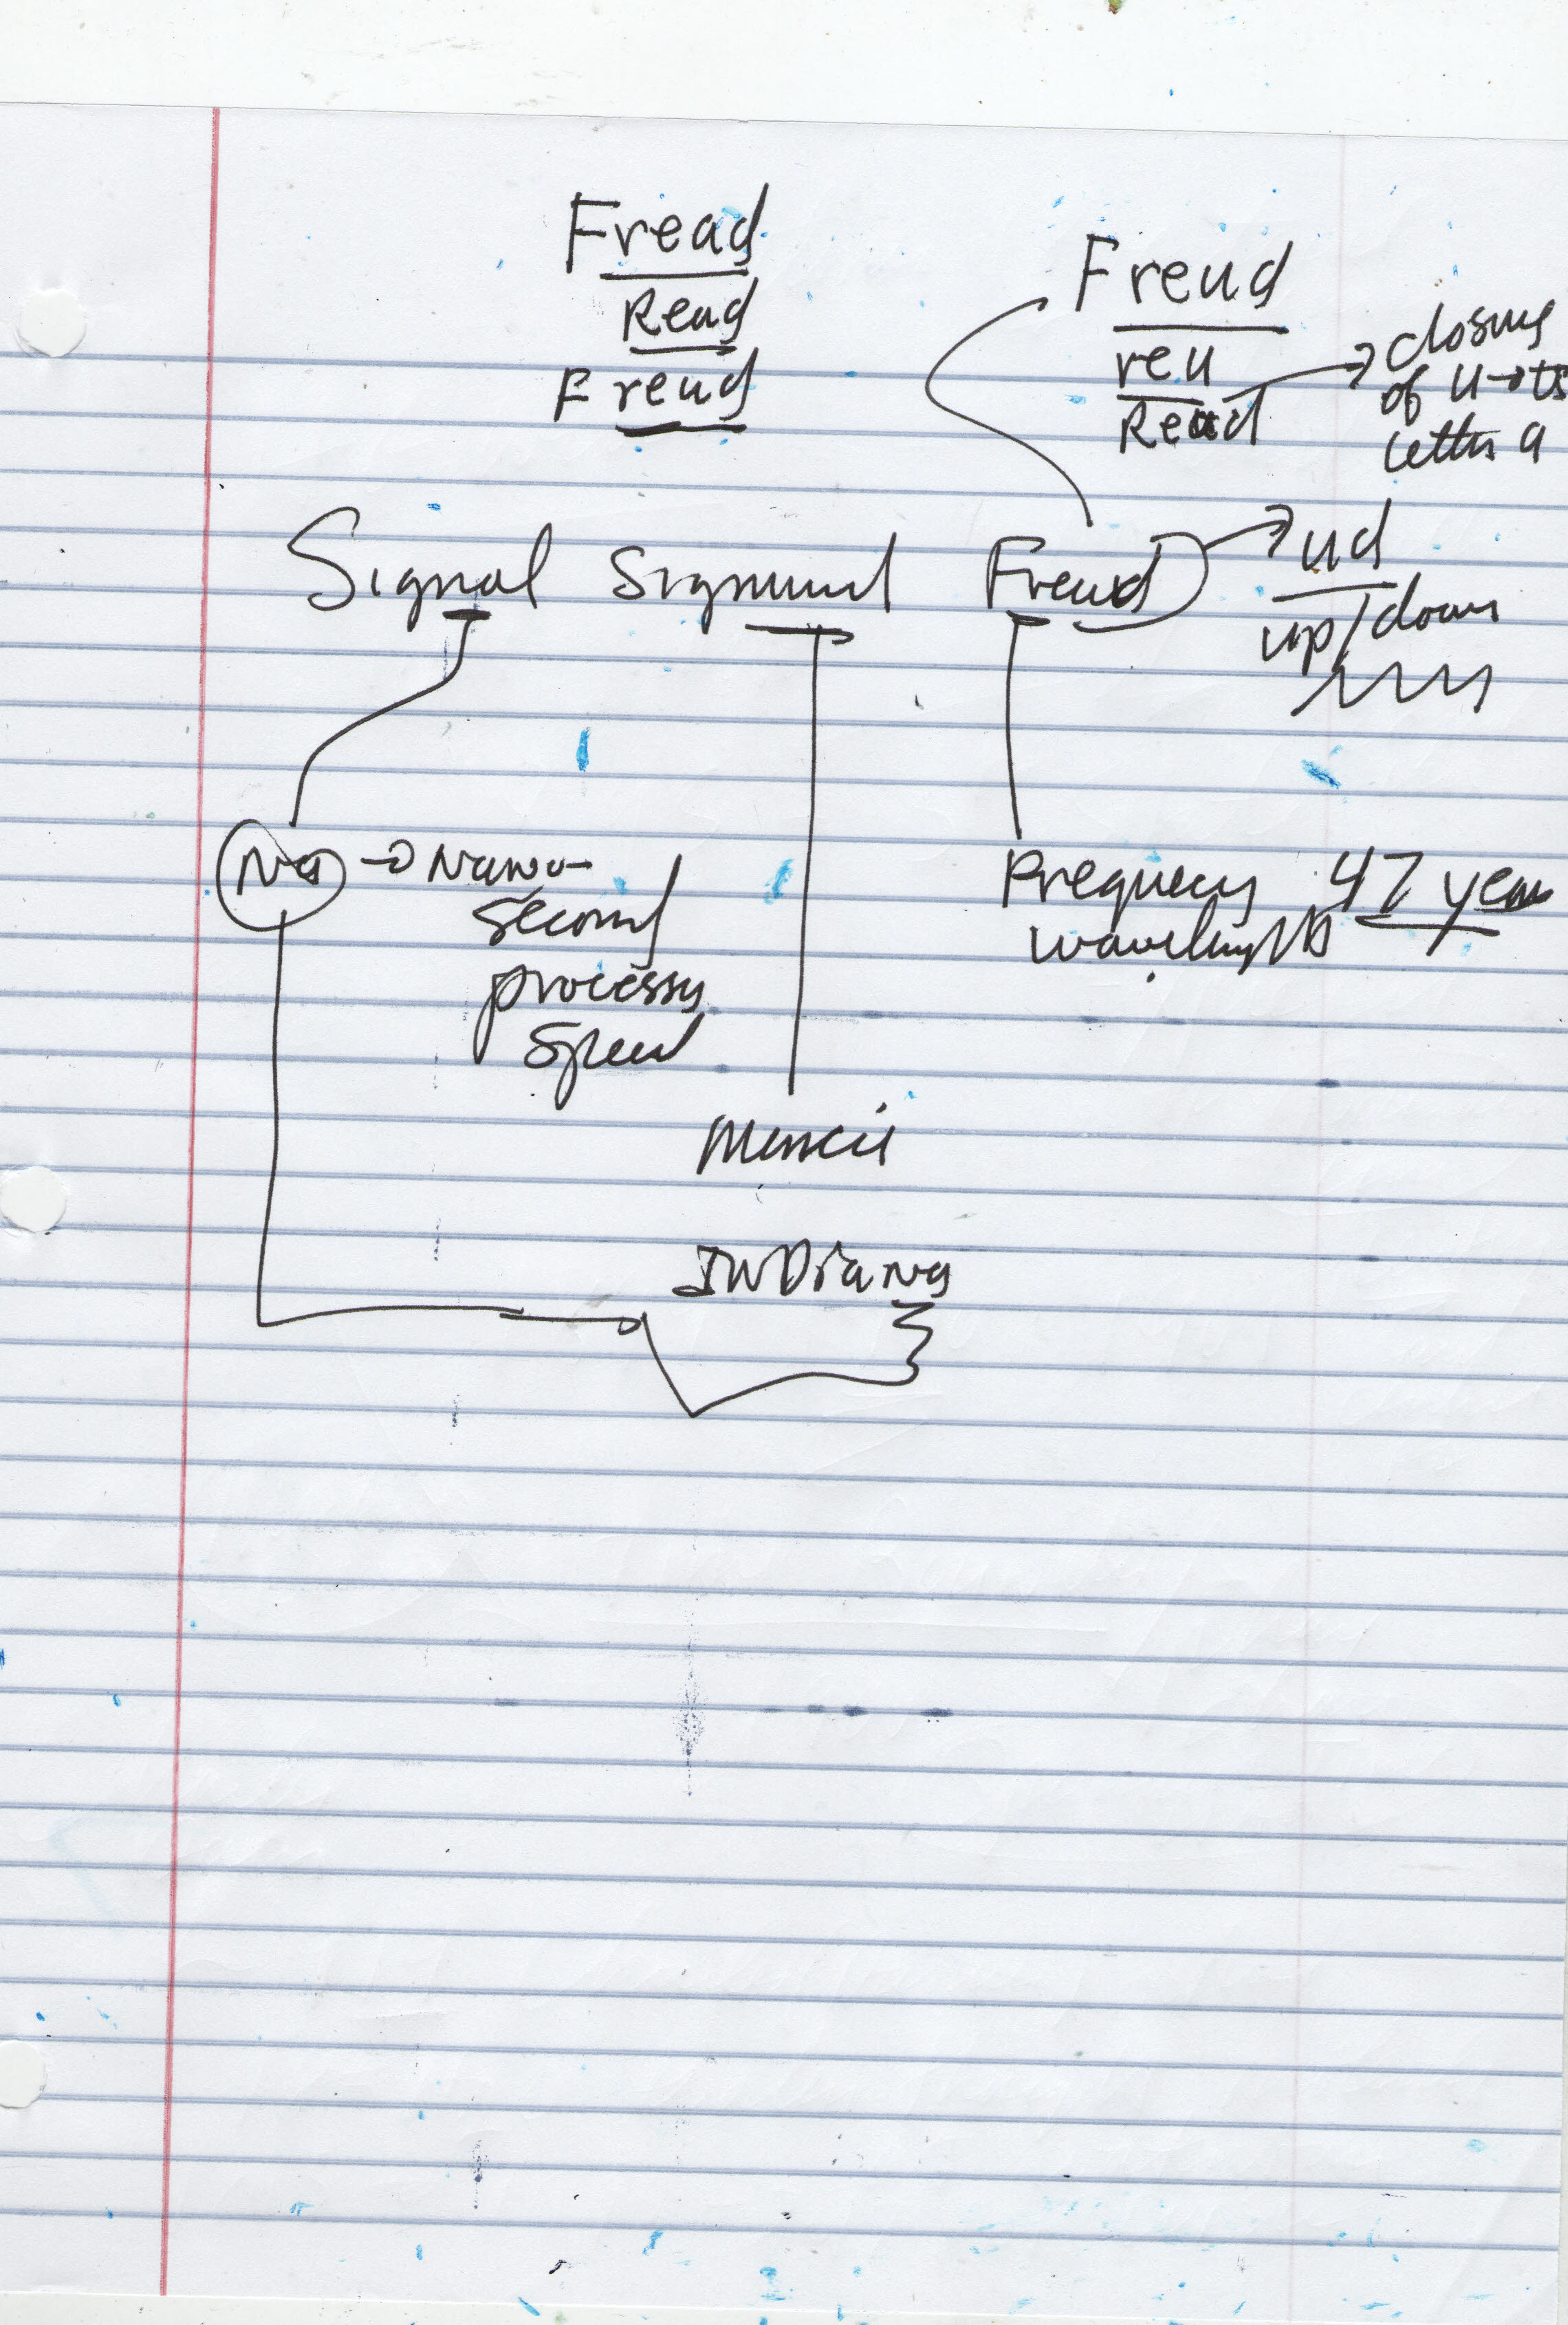 Fread
Read
Freud
Freud
reu
Read
closing
of u → to
letter a
Signal Sigmund Freud
ud
up/down
Na → Nano-
second
processing
speed
Frequency
wavelength
47 years
Muncie
INDiana